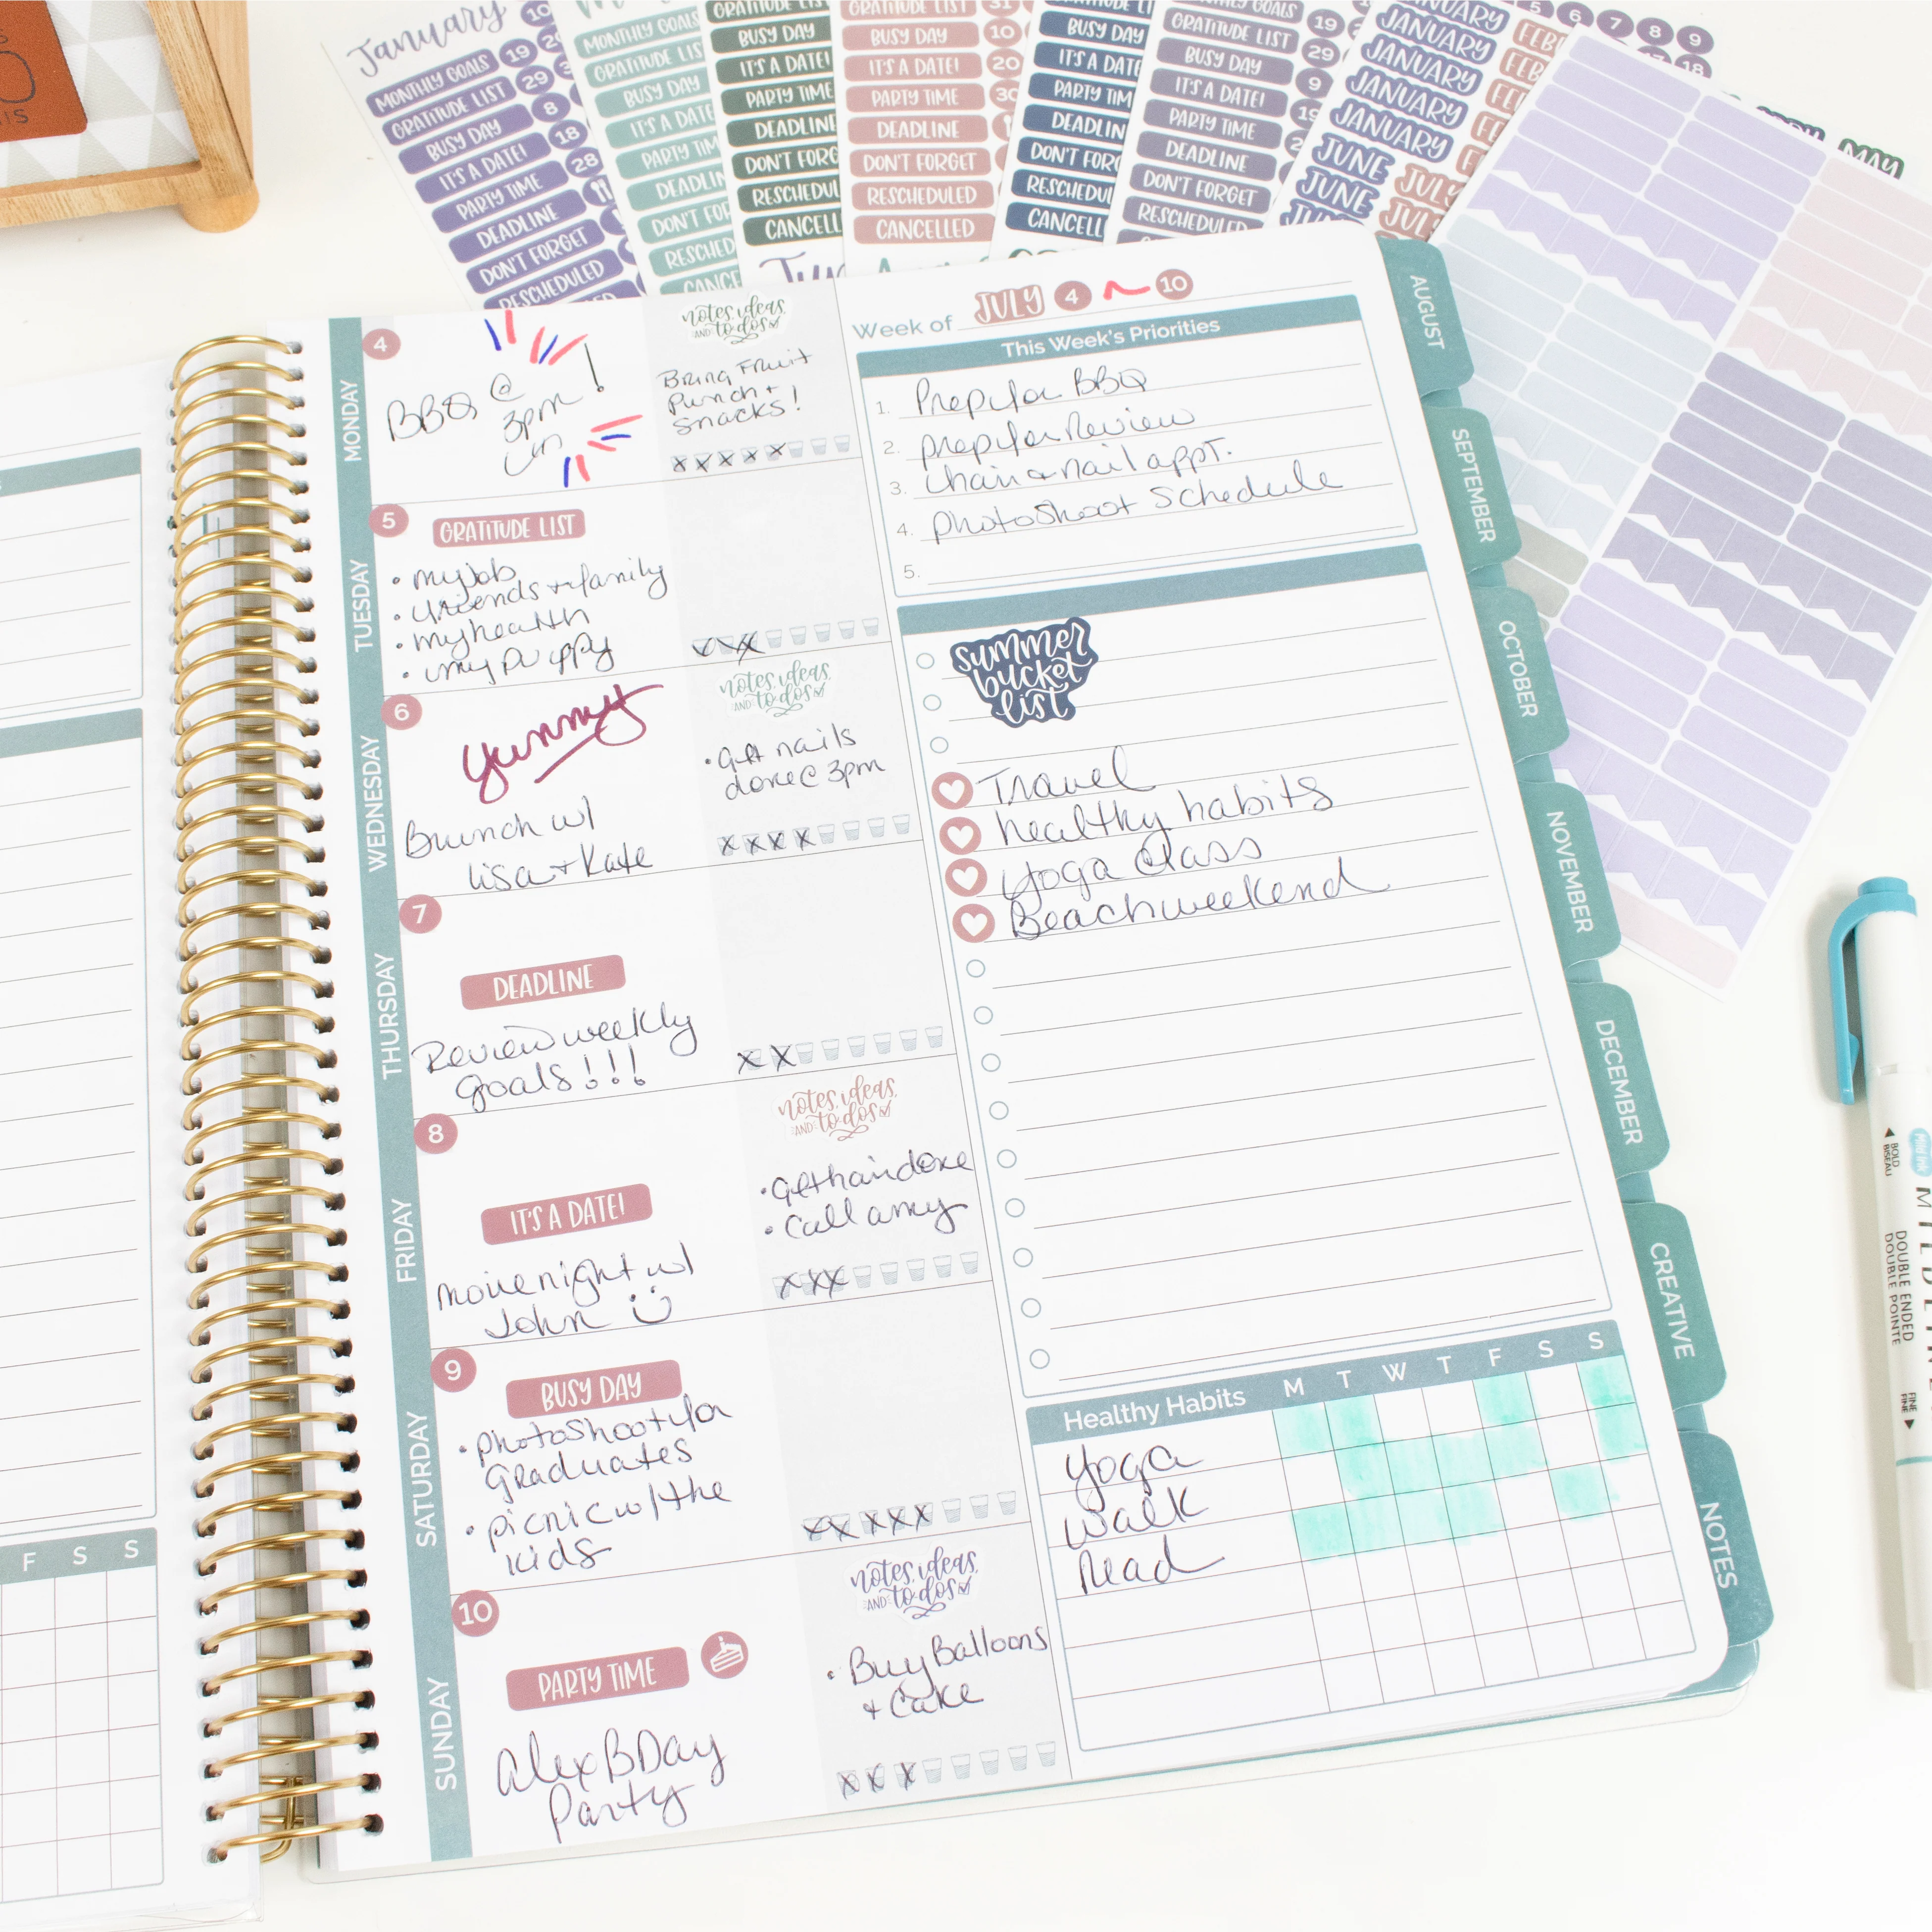 January
MONTHLY GOALS 19
GRATITUDE LIST 29
BUSY DAY 8
IT'S A DATE! 18
PARTY TIME 28
DEADLINE
DON'T FORGET
RESCHEDULED
MONTHLY GOALS
GRATITUDE LIS
BUSY DAY
IT'S A DATE
PARTY TIM
DEADLIN
DON'T FOR
RESCHED
CANCE
GRATITUDE LIS
BUSY DAY
IT'S A DATE!
PARTY TIME
DEADLINE
DON'T FORG
RESCHEDUL
CANCELL
GRATITUDE LIST 31
BUSY DAY 10
IT'S A DATE! 20
PARTY TIME 30
DEADLINE
DON'T FORGET
RESCHEDULED
CANCELLED
BUSY DAY
IT'S A DATE
PARTY TIM
DEADLIN
DON'T FORG
RESCHEDUL
CANCELL
GRATITUDE LIST 19
BUSY DAY 29
IT'S A DATE! 9
PARTY TIME
DEADLINE
DON'T FORGET
RESCHEDULED
JANUARY
JANUARY
JANUARY
JANUARY
JANUARY
JUNE JULY
JUNE JULY
5 6 7 8 9
18
MAY
4
MONDAY
BBQ @
3pm!
notes, ideas,
AND to dos
Bring Fruit
Punch +
Snacks!
5
TUESDAY
GRATITUDE LIST
• my job
• friends + family
• my health
• my puppy
6
WEDNESDAY
yummy
Brunch w/
Lisa + Kate
notes, ideas,
AND to dos
• Get nails
done @ 3pm
7
THURSDAY
DEADLINE
Review weekly
goals!!!
8
FRIDAY
IT'S A DATE!
Movie night w/
John
notes, ideas,
AND to dos
• Get hair done
• Call amy
9
SATURDAY
BUSY DAY
• Photoshoot for
Graduates
• Picnic w/ the
kids
10
SUNDAY
PARTY TIME
Alex BDay
Party
notes, ideas,
AND to dos
• Buy Balloons
+ Cake
Week of JULY 4 ~ 10
This Week's Priorities
1. Prep for BBQ
2. Prep for Review
3. hair & nail appt.
4. Photoshoot Schedule
5.
summer
bucket
list
Travel
healthy habits
Yoga class
Beach weekend
Healthy Habits M T W T F S S
Yoga
Walk
Read
AUGUST
SEPTEMBER
OCTOBER
NOVEMBER
DECEMBER
CREATIVE
NOTES
F S S
BOLD
DOUBLE ENDED
DOUBLE POINTE
FINE